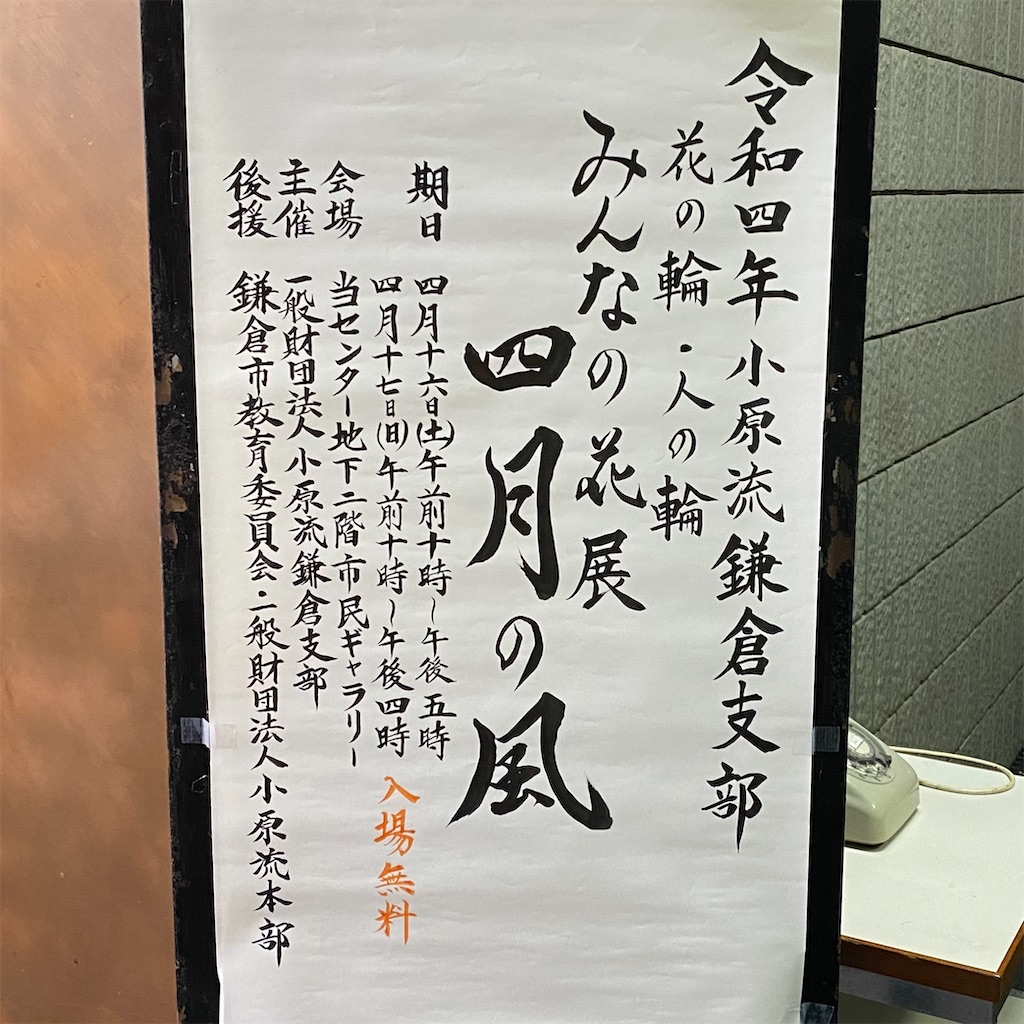 令和四年 小原流鎌倉支部
花の輪・人の輪
みんなの花展
四月の風
期日 四月十六日(土)午前十時～午後五時
四月十七日(日)午前十時～午後四時 入場無料
会場 当センター地下二階市民ギャラリー
主催 一般財団法人小原流鎌倉支部
後援 鎌倉市教育委員会・一般財団法人小原流本部